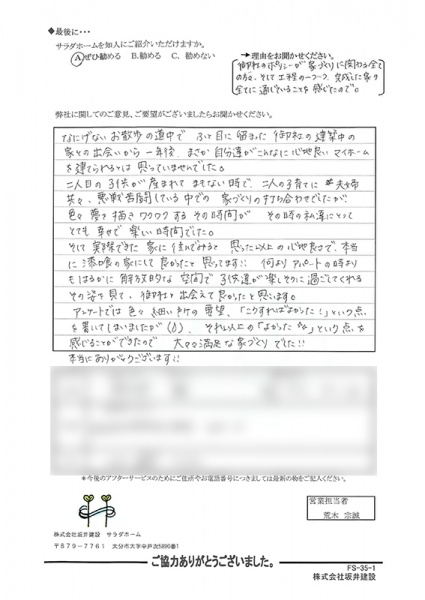 ◆最後に・・・
サラダホームを知人にご紹介いただけますか。
Aぜひ勧める B.勧める C.勧めない
→理由をお聞かせください。
御社のポリシーが家づくりに関わる全て
の方、そして工程の一つ一つ、完成した家の
全てに通じていることを感じたので。
弊社に関してのご意見、ご要望がございましたらお聞かせください。
なにげないお散歩の道中で ふと目に留まった御社の建築中の
家との出会いから一年後、まさか自分達がこんなに心地良いマイホーム
を建てられるとは思っていませんでした。
二人目の子供が産まれてまもない時で、二人の子育てに夫婦
共々、悪戦苦闘している中での家づくりの打ち合わせでしたが、
色々夢を描きワクワクするその時間が その時の私達にとって
とても幸せで楽しい時間でした。
そして実際できた家に住んでみると思った以上の心地良さで、本当
に漆喰の家にして良かったと思ってます!! 何よりアパートの時より
もはるかに解放的な空間で子供達が楽しそうに過ごしてくれる
その姿を見て、御社と出会えて良かったと思います。
アンケートでは色々細い所の要望、「こうすればよかった!」という点
を書いてしまいましたが、それ以上の「よかった」という点を
感じることができたので 大々々満足な家づくりでした!!
本当にありがとうございます!!
＊今後のアフターサービスのためにご住所やお電話番号につきましては最新の物をご記入ください。
営業担当者
荒木 宗誠
株式会社坂井建設 サラダホーム
〒879-7761 大分市大字中戸次5890番1
ご協力ありがとうございました。
FS-35-1
株式会社坂井建設